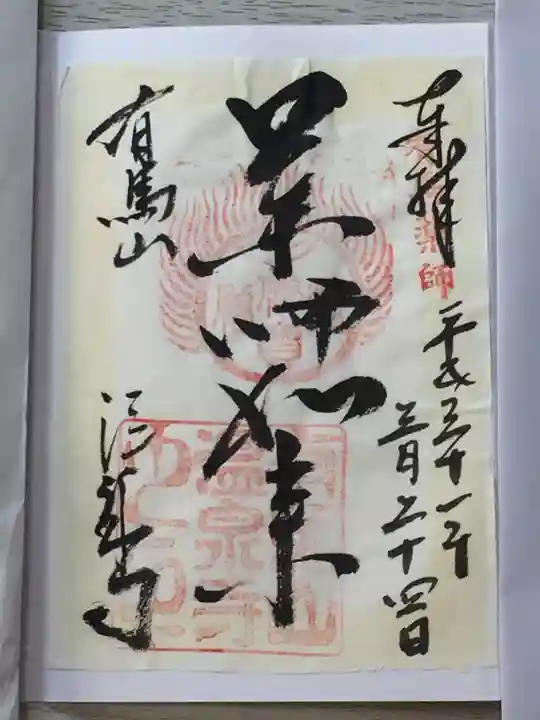 奉拝
薬師
平成三十一年
三月二十四日
薬師如来
有馬山
温泉寺
温泉寺